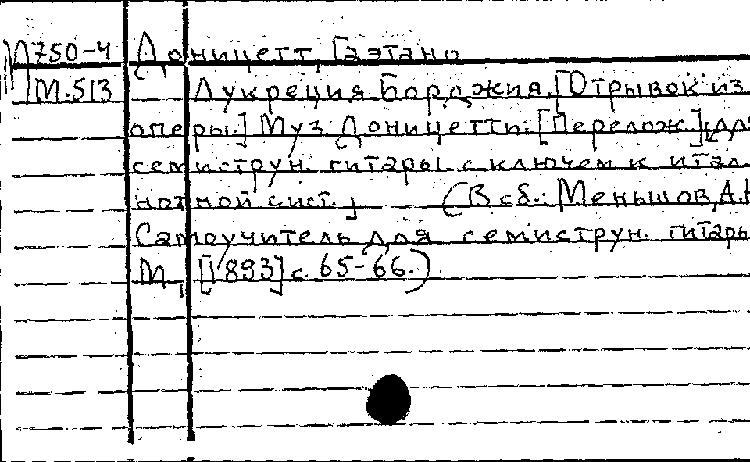 М750-4 Доницетт, Гаэтано
М.513 Лукреция Борджия. [Отрывок из
оперы.] Муз Доницетти. [Перелож.] для
семиструн. гитары с ключем к итал.
нотной сист.] (В сб.: Меньшов, А.
Самоучитель для семиструн. гитары
М, [1893] с. 65-66.)